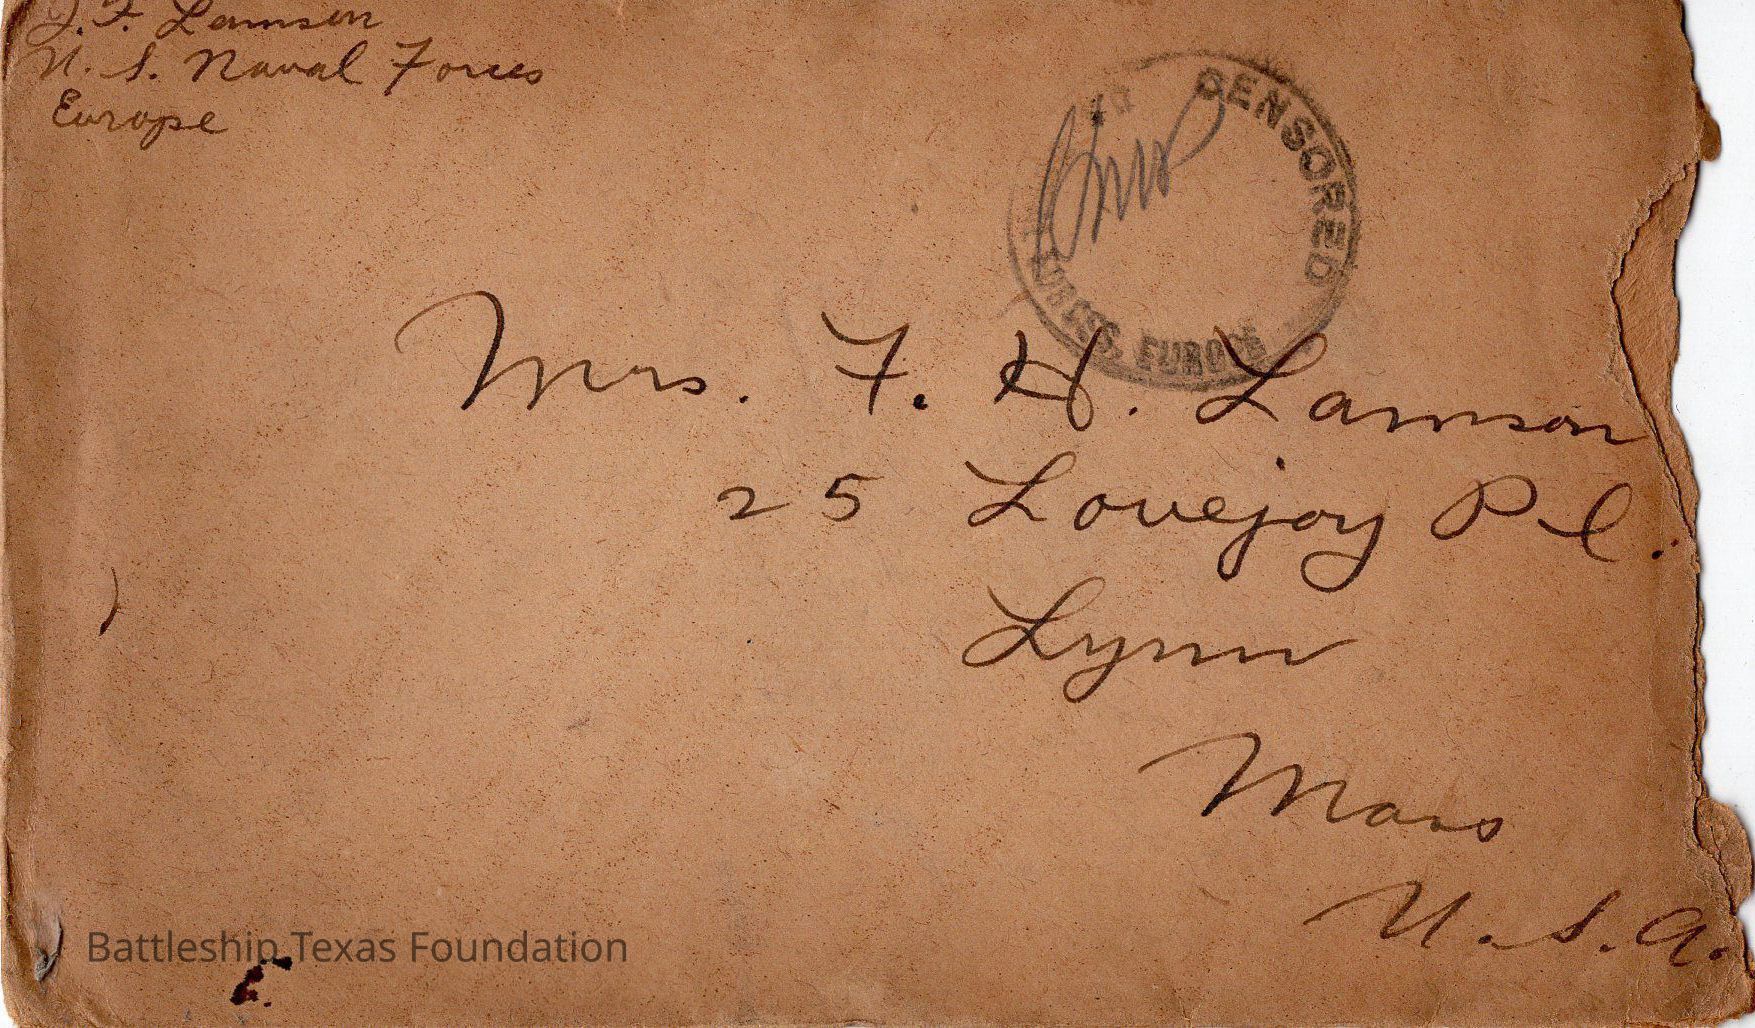 F. Lamson
U. S. Naval Forces
Europe
CENSORED
EUROPE
Mrs. F. H. Lamson
25 Lovejoy Pl.
Lynn
Mass
U. S. A.
Battleship Texas Foundation